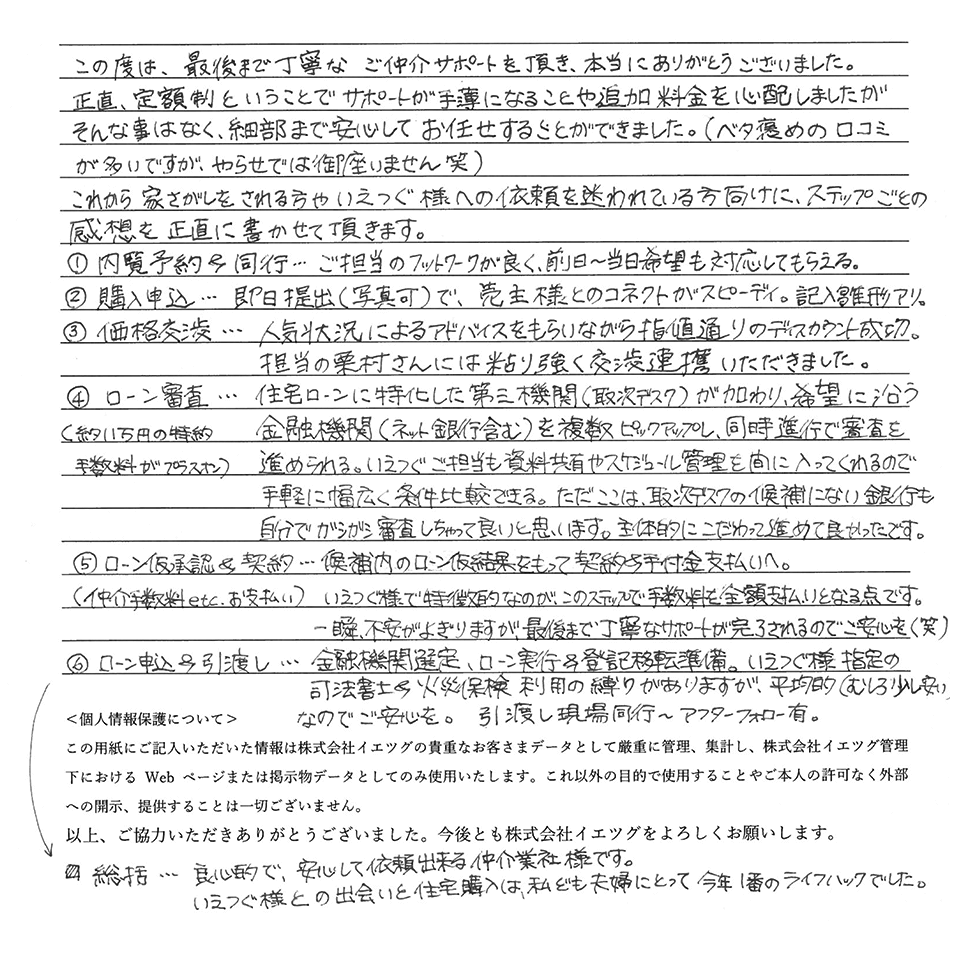 この度は、最後まで丁寧な ご仲介サポートを頂き、本当にありがとうございました。
正直、定額制ということで サポートが手薄になることや追加料金を心配しましたが
そんな事はなく、細部まで安心して お任せすることができました。(ベタ褒めの口コミ
が多いですが、やらせでは御座いません笑)
これから家さがしをされる方や いえつぐ様への依頼を迷われている方向けに、ステップごとの
感想を正直に書かせて頂きます。
① 内覧予約&同行… ご担当のフットワークが良く、前日〜当日希望も対応してもらえる。
② 購入申込… 即日提出(写真可)で、売主様とのコネクトがスピーディ。記入雛形アリ。
③ 価格交渉… 人気状況によるアドバイスをもらいながら指値通りのディスカウント成功。
担当の栗村さんには粘り強く交渉連携いただきました。
④ ローン審査… 住宅ローンに特化した第三機関(取次デスク)が加わり、希望に沿う
(約11万円の特約 金融機関(ネット銀行含む)を複数ピックアップし、同時進行で審査を
手数料がプラスオン) 進められる。いえつぐご担当も資料共有やスケジュール管理を間に入ってくれるので
手軽に幅広く条件比較できる。ただここは、取次デスクの候補にない銀行も
自分でガシガシ審査しちゃって良いと思います。主体的にこだわって進めて良かったです。
⑤ ローン仮承認&契約… 候補内のローン仮結果をもって契約&手付金支払いへ。
(仲介手数料etc.お支払い) いえつぐ様で特徴的なのが、このステップで手数料を全額支払いとなる点です。
一瞬、不安がよぎりますが、最後まで丁寧なサポートが完了されるのでご安心を(笑)
⑥ ローン申込&引渡し… 金融機関選定、ローン実行&登記移転準備。いえつぐ様指定の
司法書士&火災保検 利用の縛りがありますが、平均的(むしろ少し安い)
なのでご安心を。 引渡し現場同行〜アフターフォロー有。
<個人情報保護について>
この用紙にご記入いただいた情報は株式会社イエツグの貴重なお客さまデータとして厳重に管理、集計し、株式会社イエツグ管理
下における Web ページまたは掲示物データとしてのみ使用いたします。これ以外の目的で使用することやご本人の許可なく外部
への開示、提供することは一切ございません。
以上、ご協力いただきありがとうございました。今後とも株式会社イエツグをよろしくお願いします。
総括… 良心的で、安心して依頼出来る仲介業社様です。
いえつぐ様との出会いと住宅購入は、私ども夫婦にとって今年1番のライフハックでした。